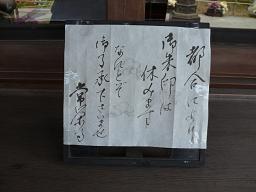 都合により
御朱印は
休みます
なにとぞ
御了承下さいませ
常栄寺